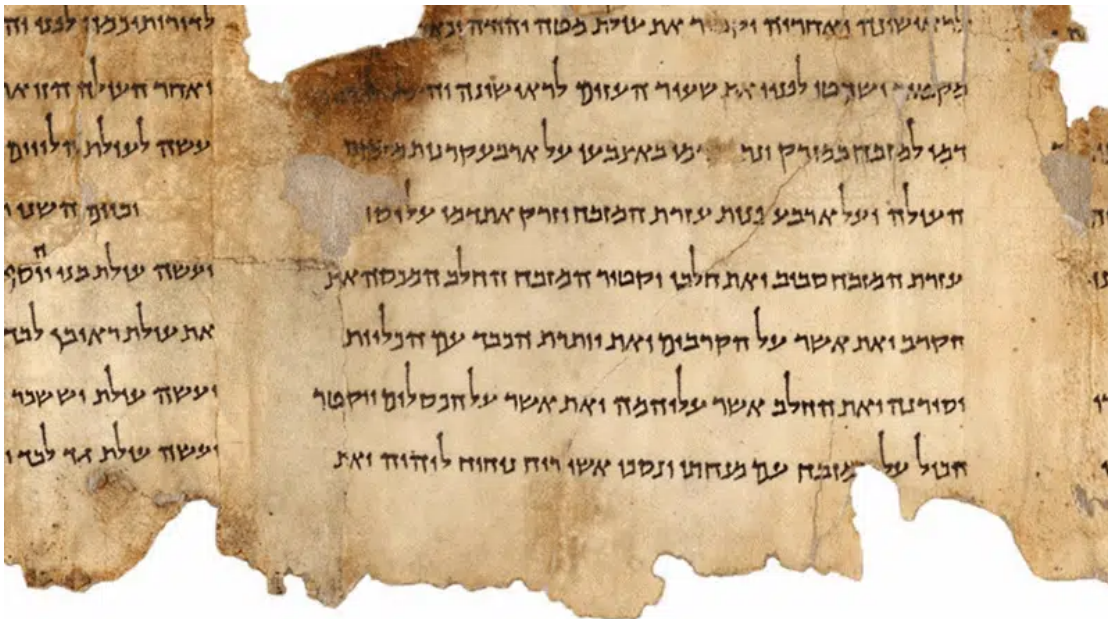 ואחריו את עולת מטה יהודה
ושחטו לפניו את שעיר העזים לראישונה
דמו למזבח במזרק באצבעו על ארבע קרנות
העולה ועל ארבע פנות עזרת המזבח וזרק את דמו על יסו
עזרת המזבח סביב ואת חלבו יקטיר המזבח החלב המכסה את
הקרב ואת אשר על הקרבים ואת יותרת הכבד עם הכליות
יסירנה ואת החלב אשר עליהמה ואת אשר על הכסלים ויקטר
הכול על מזבח עם מנחתו ונסכו אשי ריח ניחוח ליהוה ואת
לפני
ואחר העולה הזואת
יעשה לעולת הלויים
וביום השני
יעשה עולת בני יהוסף
את עולת ראובן לבד
ויעשה עולת יששכר
ויעשה עולת גד לבד ו